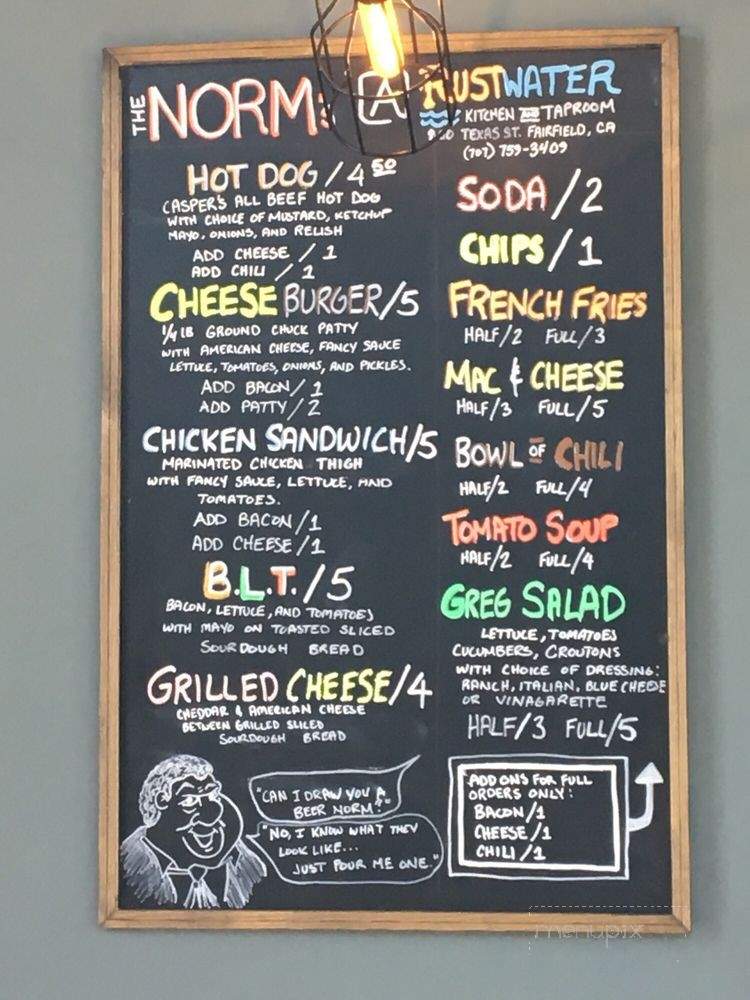 THE NORM
RUSTWATER
KITCHEN AND TAPROOM
TEXAS ST. FAIRFIELD, CA
(707) 759-3409
HOT DOG / 4 50
CASPER'S ALL BEEF HOT DOG
WITH CHOICE OF MUSTARD, KETCHUP
MAYO, ONIONS, AND RELISH
ADD CHEESE / 1
ADD CHILI / 1
CHEESE BURGER/5
1/4 LB GROUND CHUCK PATTY
WITH AMERICAN CHEESE, FANCY SAUCE
LETTUCE, TOMATOES, ONIONS, AND PICKLES.
ADD BACON/1
ADD PATTY/2
CHICKEN SANDWICH/5
MARINATED CHICKEN THIGH
WITH FANCY SAUCE, LETTUCE, AND
TOMATOES.
ADD BACON/1
ADD CHEESE/1
B.L.T./5
BACON, LETTUCE, AND TOMATOES
WITH MAYO ON TOASTED SLICED
SOURDOUGH BREAD
GRILLED CHEESE/4
CHEDDAR & AMERICAN CHEESE
BETWEEN GRILLED SLICED
SOURDOUGH BREAD
"CAN I DRAW YOU A
BEER NORM?"
"NO, I KNOW WHAT THEY
LOOK LIKE...
JUST POUR ME ONE."
SODA/2
CHIPS/1
FRENCH FRIES
HALF/2 FULL/3
MAC & CHEESE
HALF/3 FULL/5
BOWL OF CHILI
HALF/2 FULL/4
TOMATO SOUP
HALF/2 FULL/4
GREG SALAD
LETTUCE, TOMATOES
CUCUMBERS, CROUTONS
WITH CHOICE OF DRESSING:
RANCH, ITALIAN, BLUE CHEESE
OR VINAGARETTE
HALF/3 FULL/5
ADD ONS FOR FULL
ORDERS ONLY:
BACON/1
CHEESE/1
CHILI/1
menupix